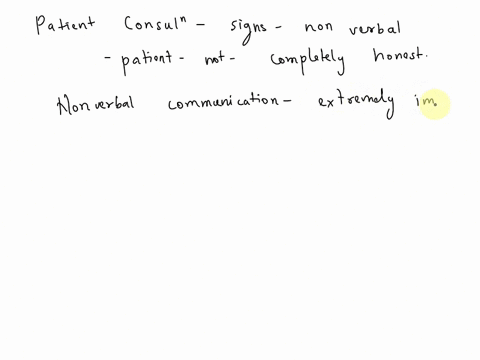 Patient Consulⁿ - signs - non verbal
- patient - not - completely honest.
Nonverbal communication - extremely im